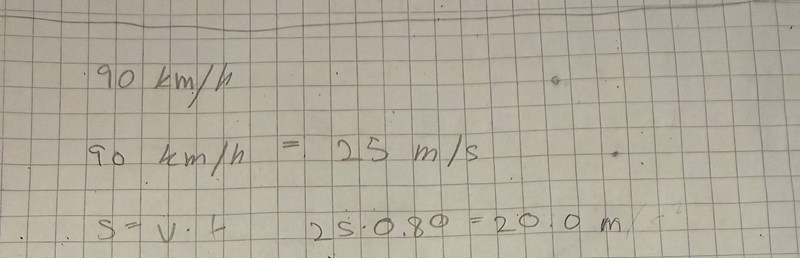 90 km/h
90 km/h = 25 m/s
s = v · t 25 · 0.80 = 20.0 m